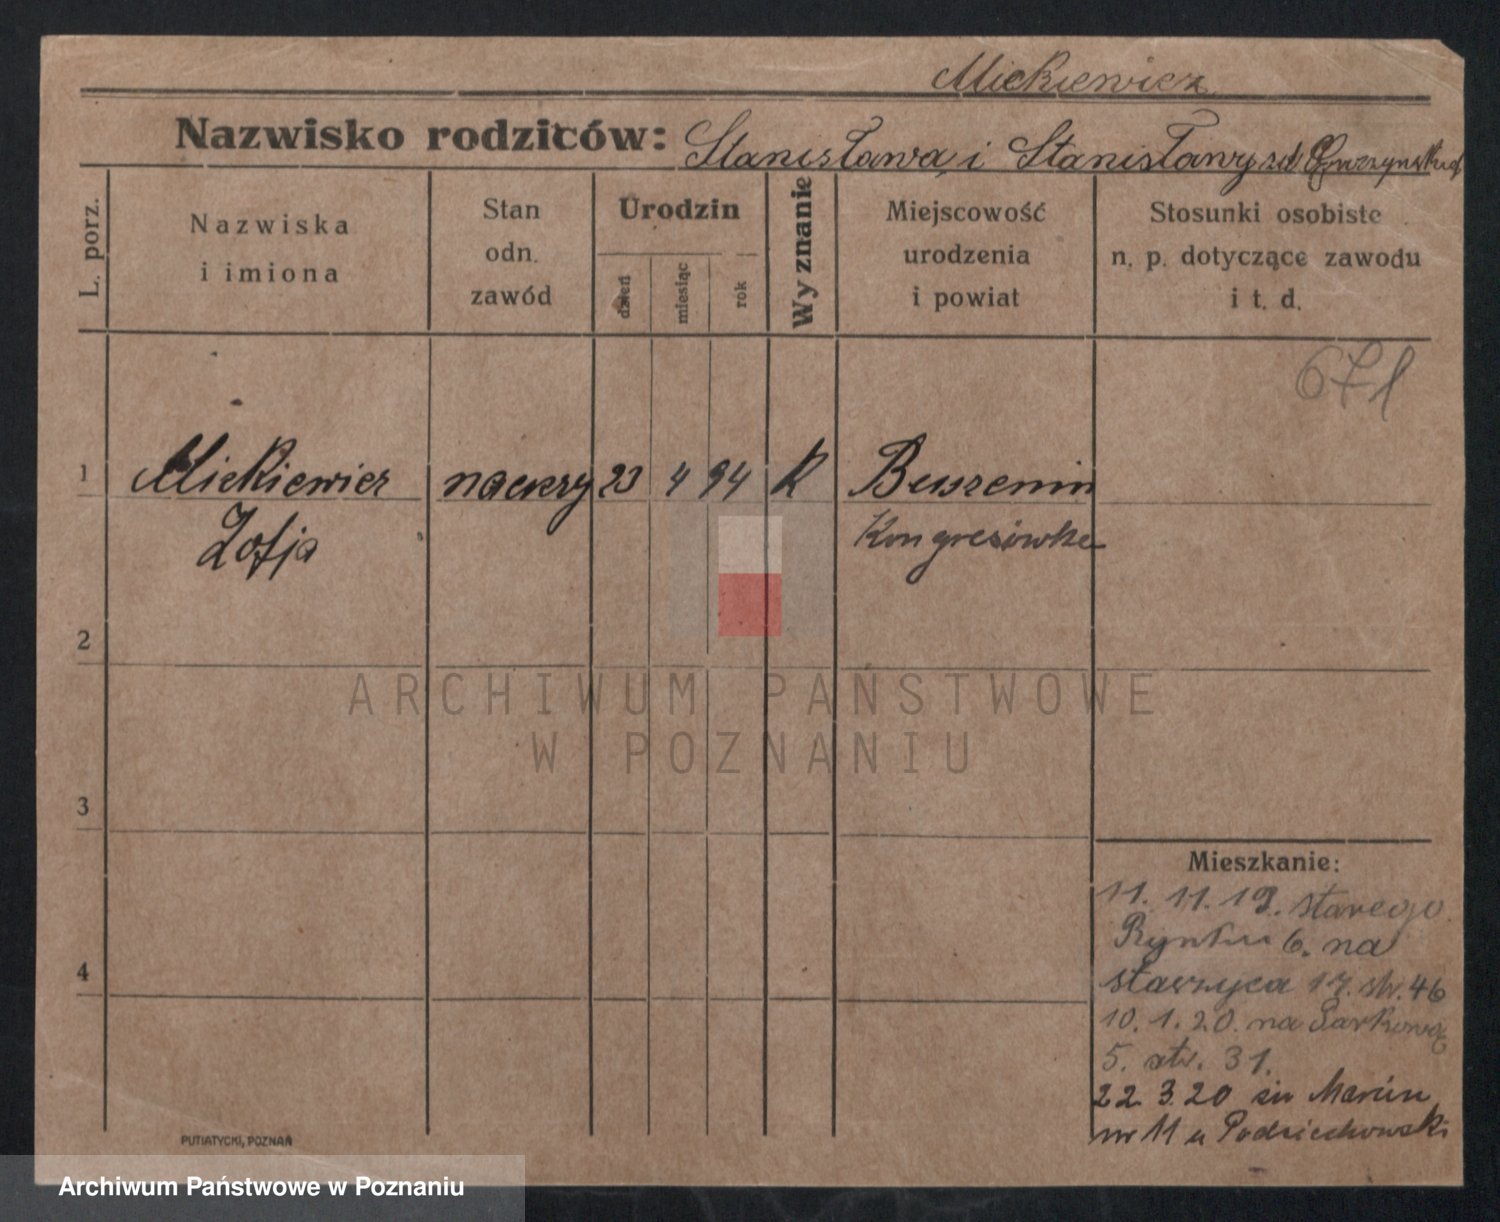 Mickiewicz
Nazwisko rodziców: Stanisława i Stanisławy zd
L. porz.
Nazwiska
i imiona
Stan
odn.
zawód
Urodzin
dzień
miesiąc
rok
Wyznanie
Miejscowość
urodzenia
i powiat
Stosunki osobiste
n. p. dotyczące zawodu
i t. d.
671
1 Mickiewicz 23 4 94 K
Zofja Kongresówka
2
3
4
Mieszkanie:
11. 11. 19. starego
Rynku 6. na
17. str. 46
10. 1. 20. na Parkową
5. str. 31.
22 3. 20 św Marcin
nr 11 u Podziechowski
PUTIATYCKI, POZNAŃ
ARCHIWUM PAŃSTWOWE
W POZNANIU
Archiwum Państwowe w Poznaniu